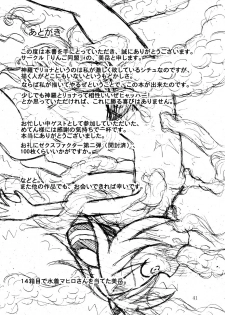 あとがき
この度は本書を手にとっていただき、誠にありがとうございます。
サークル「りんご同盟」の、美岳と申します。
神羅でリョナというのは私が激しく欲しているシチュなのですが、
描く人がどこにもいないというもどかしさがあり、
ならば私が描いてやるぜという事で、この本が出来たのです。
少しでも神羅とリョナって相性いいぜヒャッハー！
とか思っていただければ、これに勝る喜びはありません。
お忙しい中ゲストとして参加していただいた、
めてん様には感謝の気持ちで一杯です。
本当にありがとうございました。
お礼にゼクスファクター第二弾（開封済）、
100枚くらいいかがですか。
などと、
また他の作品でも、お会いできれば幸いです。
14箱目で水着マヒロさんを当てた美岳
41